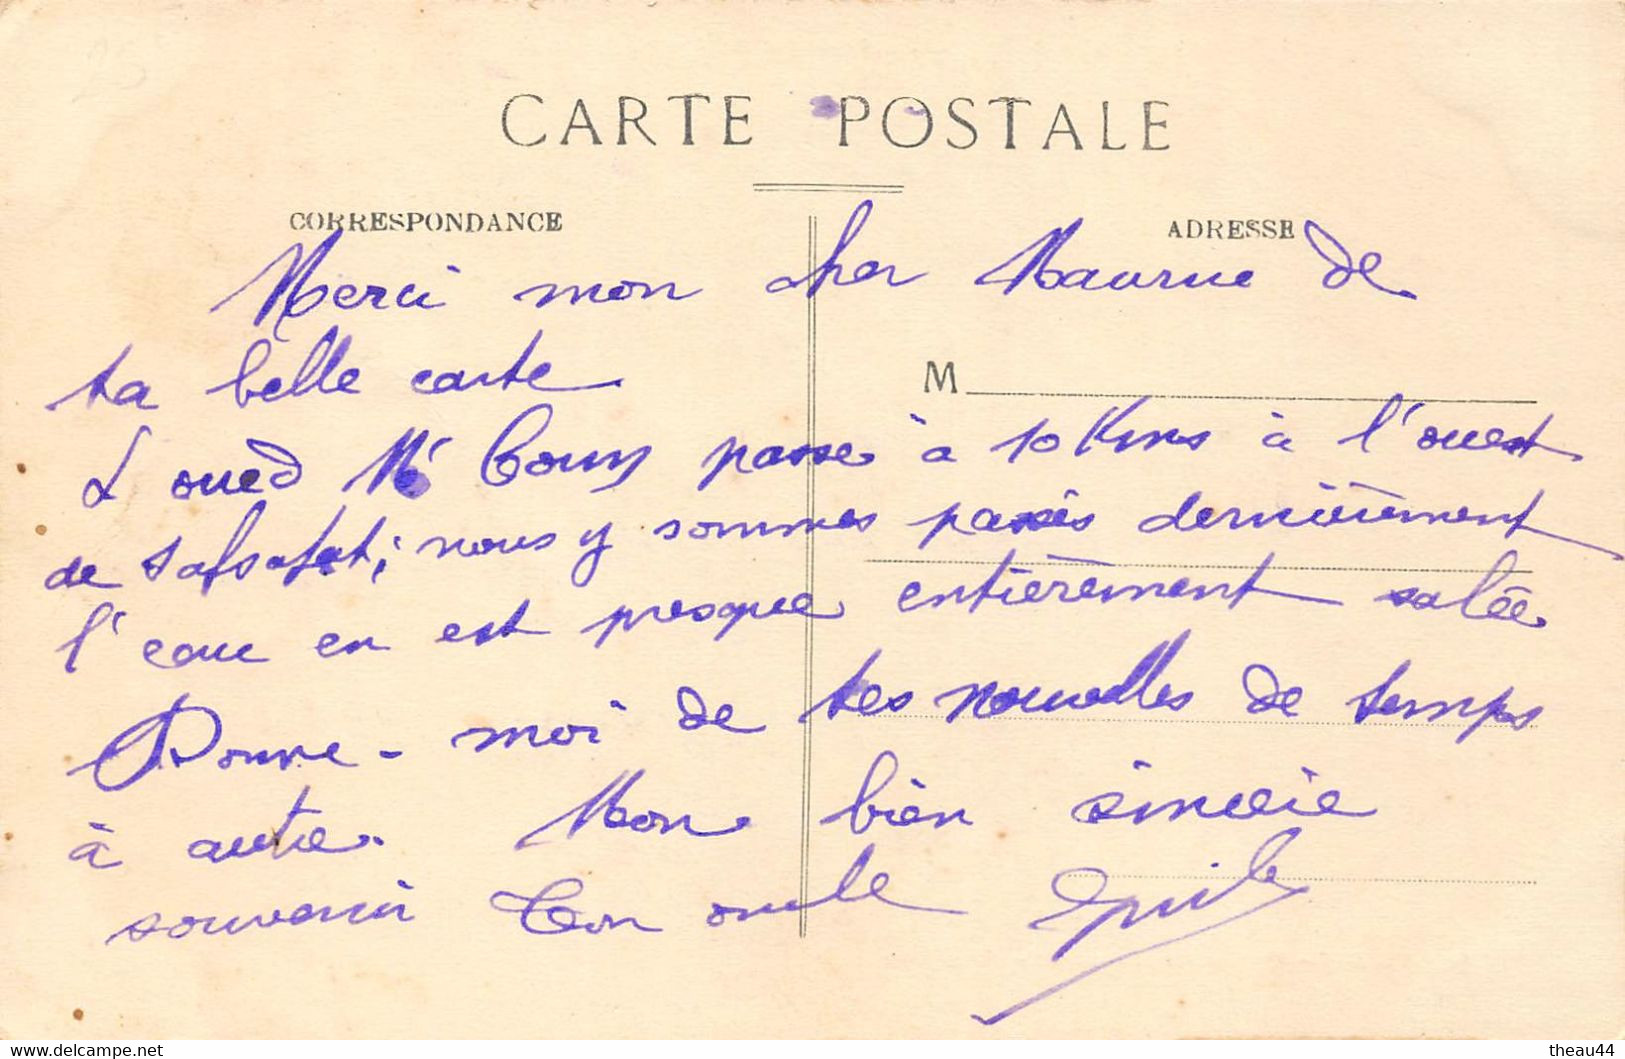 CARTE POSTALE
CORRESPONDANCE
ADRESSE
Merci mon cher Maurice de
ta belle carte
M
L'oued M' Coun passe à 10 Kms à l'ouest
de Safsafat; nous y sommes passés dernièrement
l'eau en est presque entièrement salée
Donne-moi de tes nouvelles de temps
à autre. Mon bien sincère
souvenir Ton oncle
www.delcampe.net
theau44